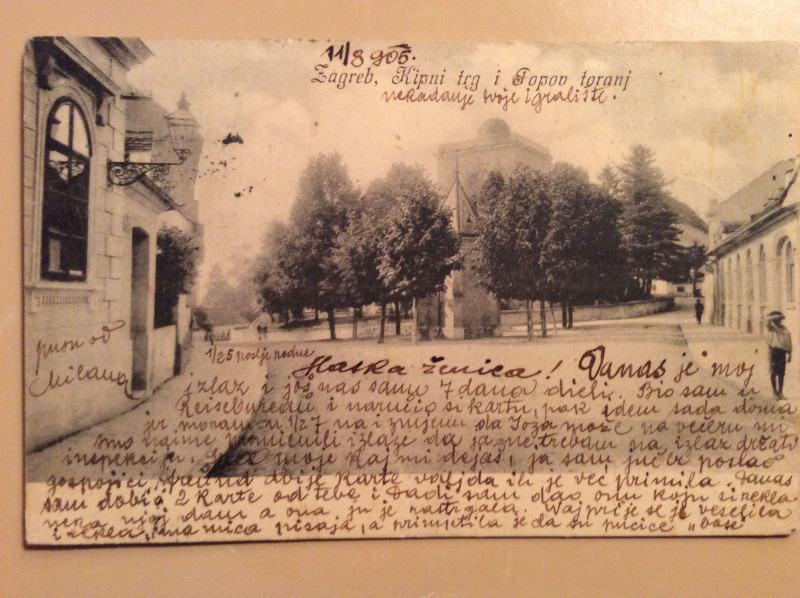 11/8 905.
Zagreb, Kipni trg i Popov toranj
nekadanje tvoje igralište.
pusu od
Milana
1/25 poslje podne
Slatka ženica! Danas je moj
izlaz i još nas samo 7 dana dieli. Bio sam u
Reisebureau i naručio si kartu, pak idem sada doma
jer moram u 1/27 na i da Joža može na večeru mi
smo izlaze da ja ne trebam na izlaz držati
inspekciju. moje kaj mi delaš, ja sam jučer poslao
gospojici Freund dvije karte valjda ih je već primila. Danas
sam dobio 2 karte od tebe i Dadi sam dao onu koju si rekla
neka njoj dam a ona ju je rastrgala. Najprije se je veselila
i rekla, mamica pisala, a primjetila je da su pucice „base